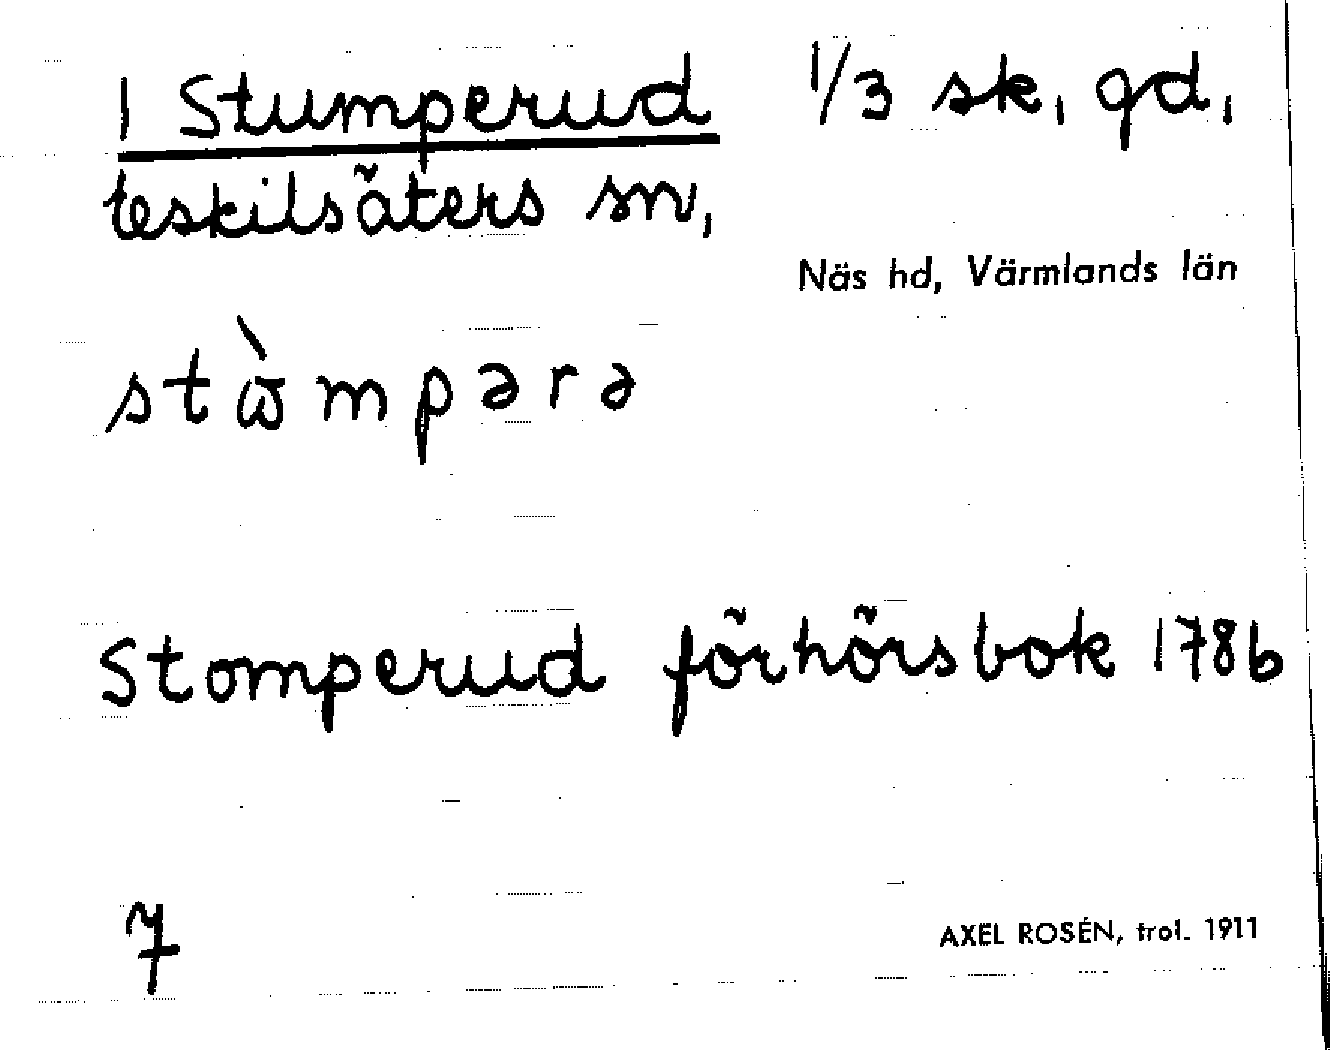 1 Stumperud 1/3 sk, gd,
Eskilsäters sn,
Näs hd, Värmlands län
stὼmpərə
Stomperud förhörsbok 1786
7
AXEL ROSÉN, trol. 1911